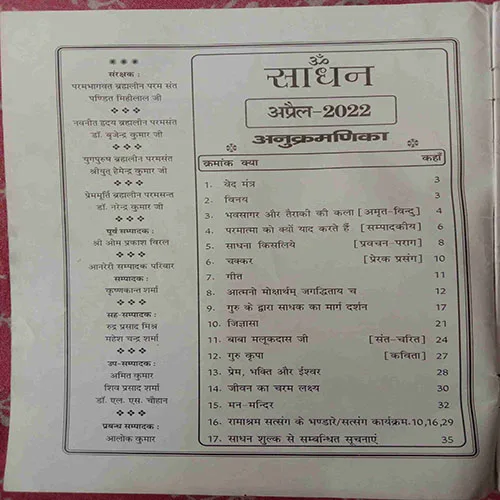 संरक्षक :
परमभागवत ब्रह्मलीन परम संत
पण्डित मिहीलाल जी
नवनीत हृदय ब्रह्मलीन परमसंत
डॉ. बृजेन्द्र कुमार जी
युगपुरुष ब्रह्मलीन परमसंत
श्रीयुत् हेमेन्द्र कुमार जी
प्रेममूर्ति ब्रह्मलीन परमसन्त
डॉ. नरेन्द्र कुमार जी
पूर्व सम्पादक :
श्री ओम प्रकाश विरल
आनरेरी सम्पादक परिवार
सम्पादक :
कृष्णकान्त शर्मा
सह-सम्पादक :
रुद्र प्रसाद मिश्र
महेश चन्द्र शर्मा
उप-सम्पादक :
अमित कुमार
शिव प्रसाद शर्मा
डॉ. एल. एस. चौहान
प्रबन्ध सम्पादक :
आलोक कुमार
ॐ
साधन
अप्रैल-2022
अनुक्रमणिका
क्रमांक क्या कहाँ
1. वेद मंत्र 3
2. विनय 3
3. भवसागर और तैराकी की कला [अमृत-विन्दु] 4
4. परमात्मा को क्यों याद करते हैं [सम्पादकीय] 6
5. साधना किसलिये [प्रवचन-पराग] 8
6. चक्कर [प्रेरक प्रसंग] 10
7. गीत 11
8. आत्मनो मोक्षार्थम् जगद्धिताय च 12
9. गुरु के द्वारा साधक का मार्ग दर्शन 17
10. जिज्ञासा 21
11. बाबा मलूकदास जी [संत-चरित] 24
12. गुरु कृपा [कविता] 27
13. प्रेम, भक्ति और ईश्वर 28
14. जीवन का चरम लक्ष्य 30
15. मन-मन्दिर 32
16. रामाश्रम सत्संग के भण्डारे/सत्संग कार्यक्रम.10,16,29
17. साधन शुल्क से सम्बन्धित सूचनाएं 35